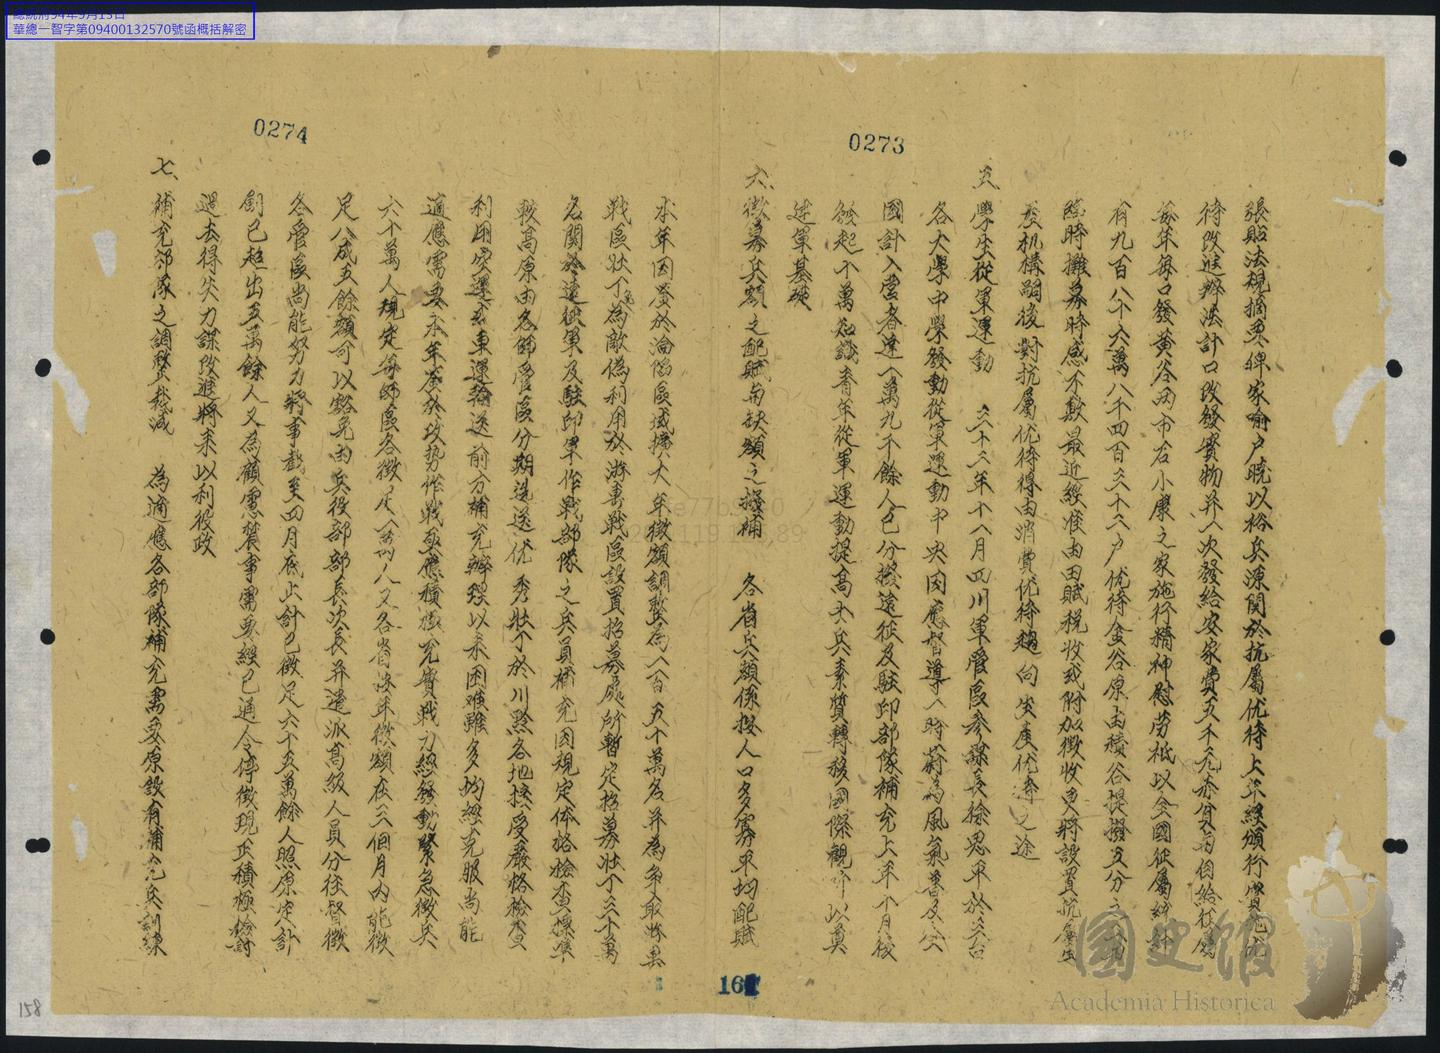 總統府94年9月13日
華總一智字第09400132570號函概括解密
0273
張貼法規摘要俾家喻户曉以裕兵源關於抗屬优待上年經頒行實施优
待改進辦法計口改發實物并一次發給安家費五千元赤貧与自給征屬
每年每口發黃谷两市石小康之家施行精神慰劳祗以全國征屬
有九百八十六萬八千四百三十六户优待金谷原由積谷提撥五分之
臨時攤募時感不敷最近經准由田賦税收或附加徵收更將設置抗屬生
產机構嗣後對抗屬优待得由消費优待趋向生產优待之途
五、學生從軍運動　三十二年十一月四川軍管區參謀長徐思平於三台
各大學中學發動從軍運動中央因應督導一時蔚為風氣普及全
國計入营者達一萬九千餘人已分撥遠征及駐印部隊補充上年十月後
發起十萬知識青年從軍運動提高士兵素質轉移國際觀听以奠
建軍基礎
六、徵募兵額之配賦与缺額之撥補　各省兵額係按人口多寡平均配賦
本年因鉴於淪陷區域擴大年徵額調整為一百五十萬名并為争取游擊
戰區壯丁免為敵偽利用於游擊戰區設置招募處所暫定招募壯丁三十萬
名關於遠征軍及駐印軍作戰部隊之兵員補充因規定体格檢查標準
較高原由各師管區分期选送优秀壯丁於川黔各地接受嚴格檢查
利用空運或車運輸送前方補充辦理以来困难雖多均經克服尚能
適應需要本年鉴於攻势作戰亟應積極充實戰力經發動緊急徵兵
六十萬人規定每師區各徵足人又各省年徵額在三個月内能徵
足八成五餘額可以豁免由兵役部部長次長并遣派高級人員分往督徵
各管區尚能努力將事截至四月底止計已徵足六十五萬餘人照原定計
劃已超出五萬餘人又為顧慮農事需要經已通令停徵現正積極檢討
過去得失力謀改進將来以利役政
七、補充部隊之調整裁減　為適應各部隊補充需要原設有補充兵訓練
0274
16
158
國史館
Academia Historica